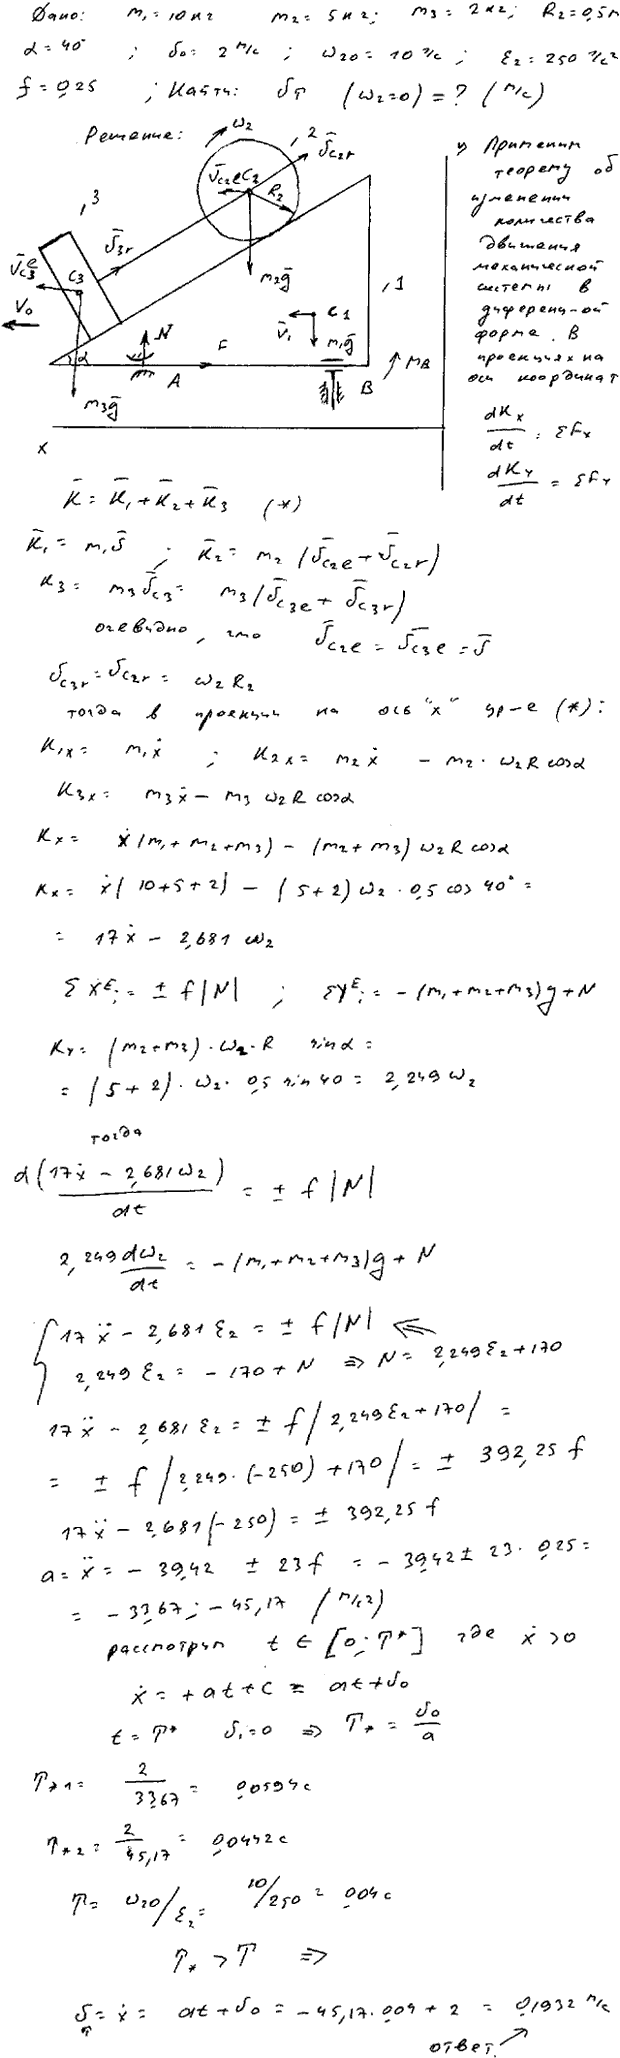 Дано: m₁ = 10 кг m₂ = 5 кг; m₃ = 2 кг; R₂ = 0,5 м
α = 40°; υ₀ = 2 м/с; ω₂₀ = 10 1/с; ε₂ = 250 1/с²
f = 0,25; Найти: υτ (ω₂=0) = ? (м/с)
Решение:
ω₂
, 2
ῡc₂r
ῡc₂e C₂
R₂
, 3
ῡ₃r
ῡc₃e
C₃
m₂ḡ
V₀
, 1
C₁
N̄
ῡ₁
m₁ḡ
α
F
A
B
MB
m₃ḡ
x
1) Применим
теорему об
изменении
количества
движения
механической
системы в
диференц-ой
форме. В
проекциях на
оси координат
dKx/dt = ΣFx
dKy/dt = ΣFy
K̄ = K̄₁ + K̄₂ + K̄₃ (*)
K̄₁ = m₁ῡ; K̄₂ = m₂ (ῡc₂e + ῡc₂r)
K₃ = m₃ῡc₃ = m₃(ῡc₃e + ῡc₃r)
очевидно, что ῡc₂e = ῡc₃e = ῡ
υc₃r = υc₂r = ω₂R₂
тогда в проекции на ось "x" ур-е (*):
K₁x = m₁ẋ; K₂x = m₂ẋ - m₂·ω₂R cosα
K₃x = m₃ẋ - m₃ω₂R cosα
Kx = ẋ(m₁+m₂+m₃) - (m₂+m₃)ω₂R cosα
Kx = ẋ(10+5+2) - (5+2)ω₂·0,5 cos 40° =
= 17ẋ - 2,681 ω₂
ΣXᴱi = ± f|N|; ΣYᴱi = -(m₁+m₂+m₃)g + N
Ky = (m₂+m₃)·ω₂·R sinα =
= (5+2)·ω₂·0,5 sin 40 = 2,249 ω₂
тогда
d(17ẋ - 2,681ω₂)/dt = ± f|N|
2,249dω₂/dt = -(m₁+m₂+m₃)g + N
17ẍ - 2,681ε₂ = ± f|N| ⇐
2,249ε₂ = -170 + N ⇒ N = 2,249ε₂ + 170
17ẍ - 2,681ε₂ = ± f|2,249ε₂ + 170| =
= ± f|2,249·(-250) + 170| = ± 392,25 f
17ẍ - 2,681(-250) = ± 392,25 f
a = ẍ = -39,42 ± 23f = -39,42 ± 23·0,25 =
= -33,67; -45,17 (м/с²)
рассмотрим t ∈ [0; T*] где ẋ > 0
ẋ = +at + C = at + υ₀
t = T* υ₁ = 0 ⇒ T* = υ₀/a
T*₁ = 2/33,67 = 0,0594 с
T*₂ = 2/45,17 = 0,0442 с
T = ω₂₀/ε₂ = 10/250 = 0,04 с
T* > T ⇒
υτ = ẋ = at + υ₀ = -45,17·0,04 + 2 = 0,1932 м/с
ответ.